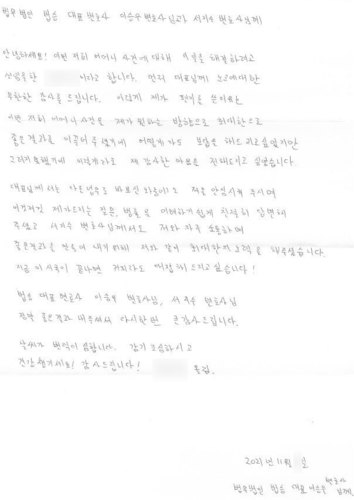 법무법인 법승 대표변호사 이승우변호사님과 서지수 변호사님께
안녕하세요! 이번 저희 어머니 사건에 대해 사건을 해결하려고
선임을한 이라고 합니다. 먼저 대표님께 노고에대한
무한한 감사를 드립니다. 이렇게 제가 편지를 쓰이유는
이번 저희 어머니사건을 제가 원하는 방향으로 최대한으로
좋은결과를 이끌어주셨기에 어떻게 가도 보답을 해드리고싶었지만
그러지못했기에 이렇게라도 제 감사한 마음을 전해드리고 싶었습니다.
대표님께서는 아무래도 바쁘신 와중에도 저를 안심시켜 주시며
이것저것 제가드리는 질문, 법률을 이해하기쉽게 친절히 답변해
주셨고 서지수 변호사님께서도 저와 자주 소통하며
좋은결과를 만들어 내기위해 저와 같이 최대한의 노력을 내주셨습니다.
지금 이시국이 끝나면 커피라도 대접해드리고싶습니다!
법승 대표변호사 이승우 변호사님, 서지수 변호사님
정말 좋은결과 내주셔서 다시한번 큰감사드립니다.
날씨가 변덕이 심합니다. 감기 조심하시고
건강챙기세요! 감사드립니다! 올림.
2021년 11월 일
법무법인 법승 대표 이승우 변호사님께.